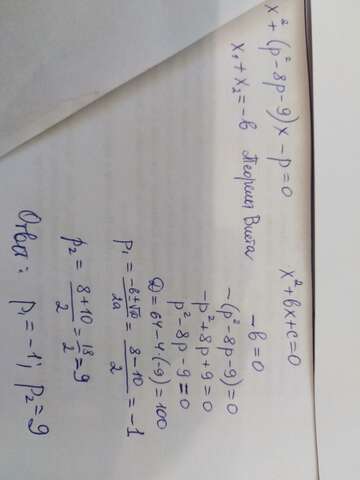 x² + (p² - 8p - 9)x - p = 0
x₁ + x₂ = -в Теорема Виета
x² + вx + c = 0
-в = 0
-(p² - 8p - 9) = 0
-p² + 8p + 9 = 0
p² - 8p - 9 = 0
D = 64 - 4·(-9) = 100
p₁ = (-в ± √D)/2a = (8 - 10)/2 = -1
p₂ = (8 + 10)/2 = 18/2 = 9
Ответ: p₁ = -1; p₂ = 9